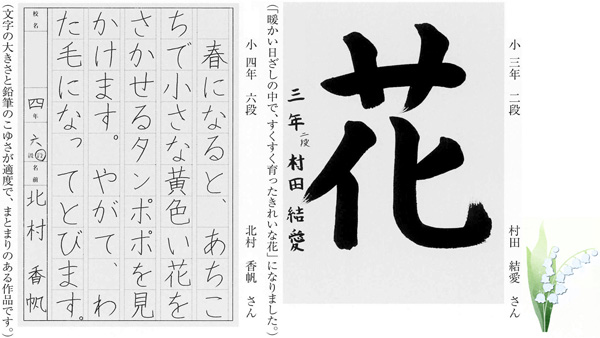 小 三年 二段 村田 結愛 さん
花
三年 二段 村田 結愛
(「暖かい日ざしの中で、すくすく育ったきれいな花」になりました。)
小 四年 六段 北村 香帆 さん
春になると、あちこ
ちで小さな黄色い花を
さかせるタンポポを見
かけます。やがて、わ
た毛になってとびます。
校名 四年 六段 名前 北村 香帆
(文字の大きさと鉛筆のこゆさが適度で、まとまりのある作品です。)